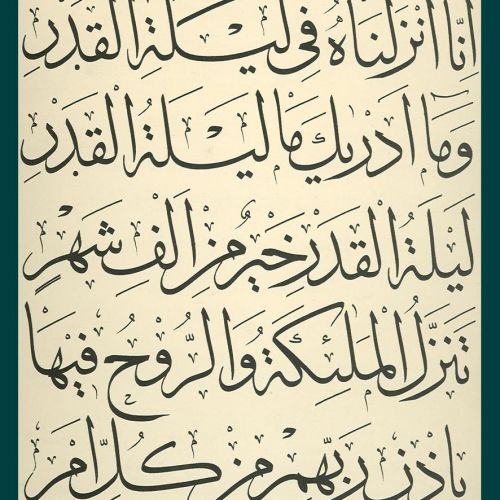 اِنَّا اَنْزَلْنَاهُ فِى لَيْلَةِ الْقَدْرِ
وَمَا اَدْرٰيكَ مَا لَيْلَةُ الْقَدْرِ
لَيْلَةُ الْقَدْرِ خَيْرٌ مِنْ اَلْفِ شَهْرٍ
تَنَزَّلُ الْمَلٰئِكَةُ وَالرُّوحُ فِيهَا
بِاِذْنِ رَبِّهِمْ مِنْ كُلِّ اَمْرٍ